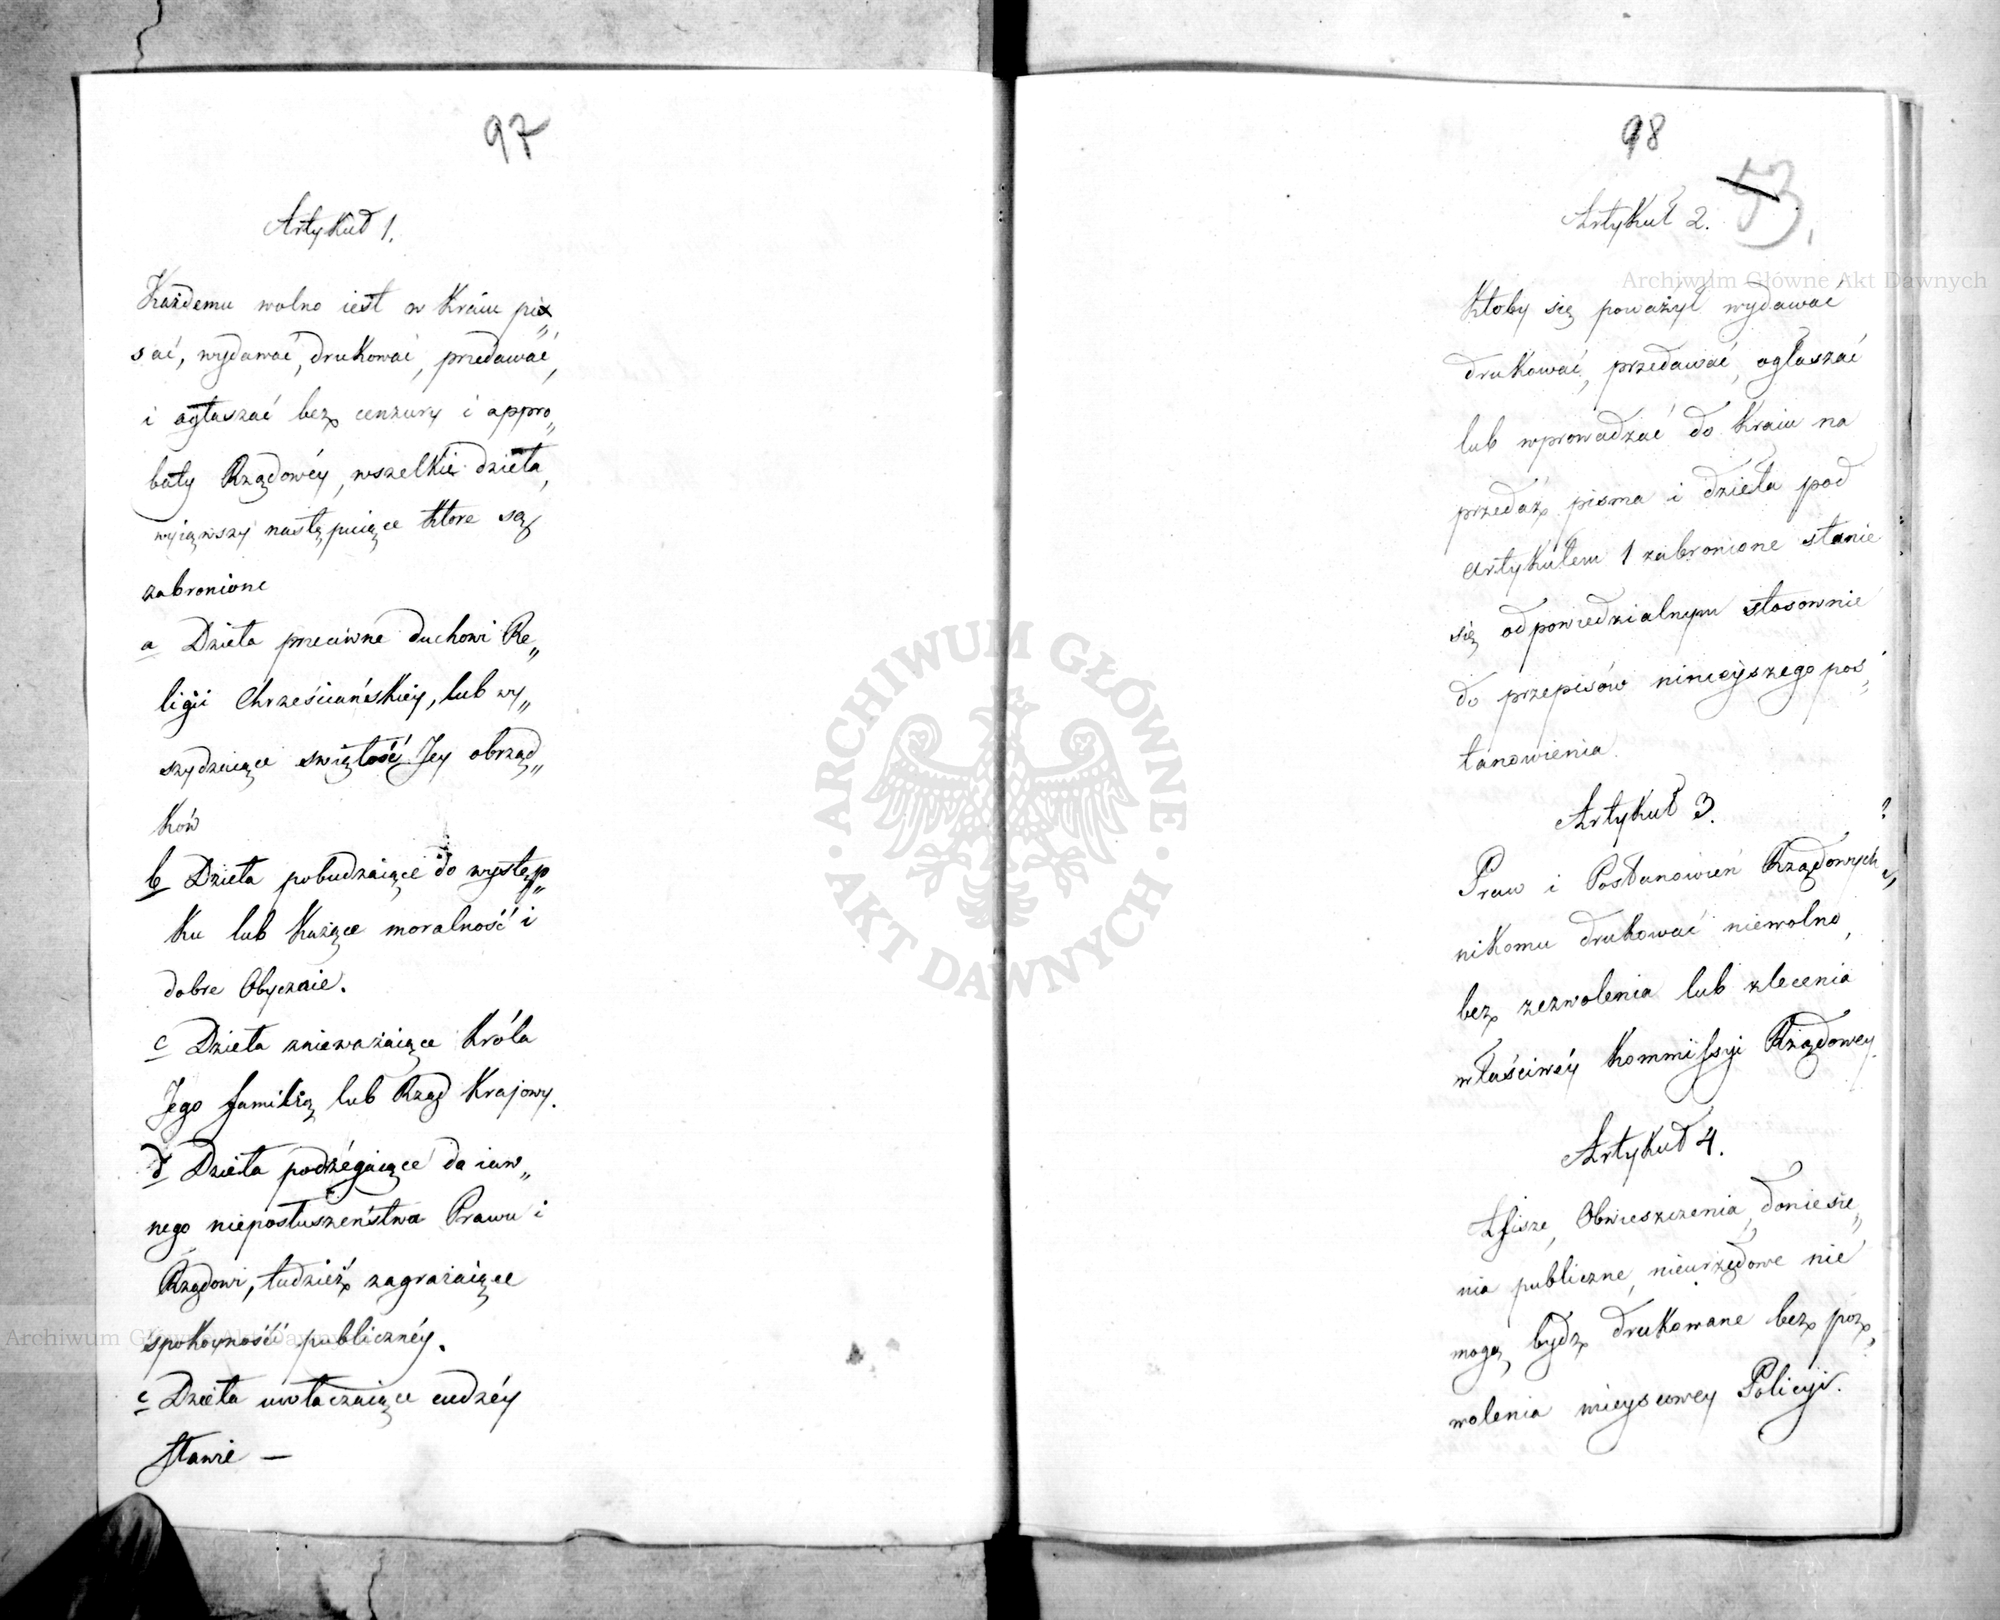 97
Artykuł 1.
Każdemu wolno iest w Kraiu pi„
sać, wydawać, drukować, przedawać,
i ogłaszać bez cenzury i appro„
baty Rządowéy, wszelkie dzieła,
wyiąwszy następuiące które są
zabronione
a Dzieła przeciwne duchowi Re„
ligii Chrześciańskiéy, lub wy„
szydzaiące świętość Jey obrząd„
ków
b Dzieła pobudzaiące do występ„
ku lub każące moralność i
dobre Obyczaie.
c Dzieła znieważaiące Króla
Jego familią lub Rząd Krajowy.
d Dzieła podżegaiące do iaw„
nego nieposłuszeństwa Prawu i
Rządowi, tudzież zagrażaiące
spokoyności publicznéy.
e Dzieła uwłaczaiące cudzéy
sławie —
98
53.
Artykuł 2.
Ktoby się poważył wydawać
drukować, przedawać, ogłaszać
lub wprowadzać do Kraiu na
przedaż pisma i dzieła pod
Artykułem 1 zabronione stanie
się odpowiedzialnym stosownie
do przepisów ninieyszego pos„
tanowienia.
Artykuł 3.
Praw i Postanowień Rządowych
nikomu drukować niewolno,
bez zezwolenia lub zlecenia
właściwéy Kommissyi Rządowey.
Artykuł 4.
Afisze, Obwieszczenia, doniesie„
nia publiczne, nieurzędowe nie
mogą bydz drukowane bez poz„
wolenia mieyscowey Policyi.
ARCHIWUM GŁÓWNE
AKT DAWNYCH
Archiwum Główne Akt Dawnych
Archiwum Główne Akt Dawnych